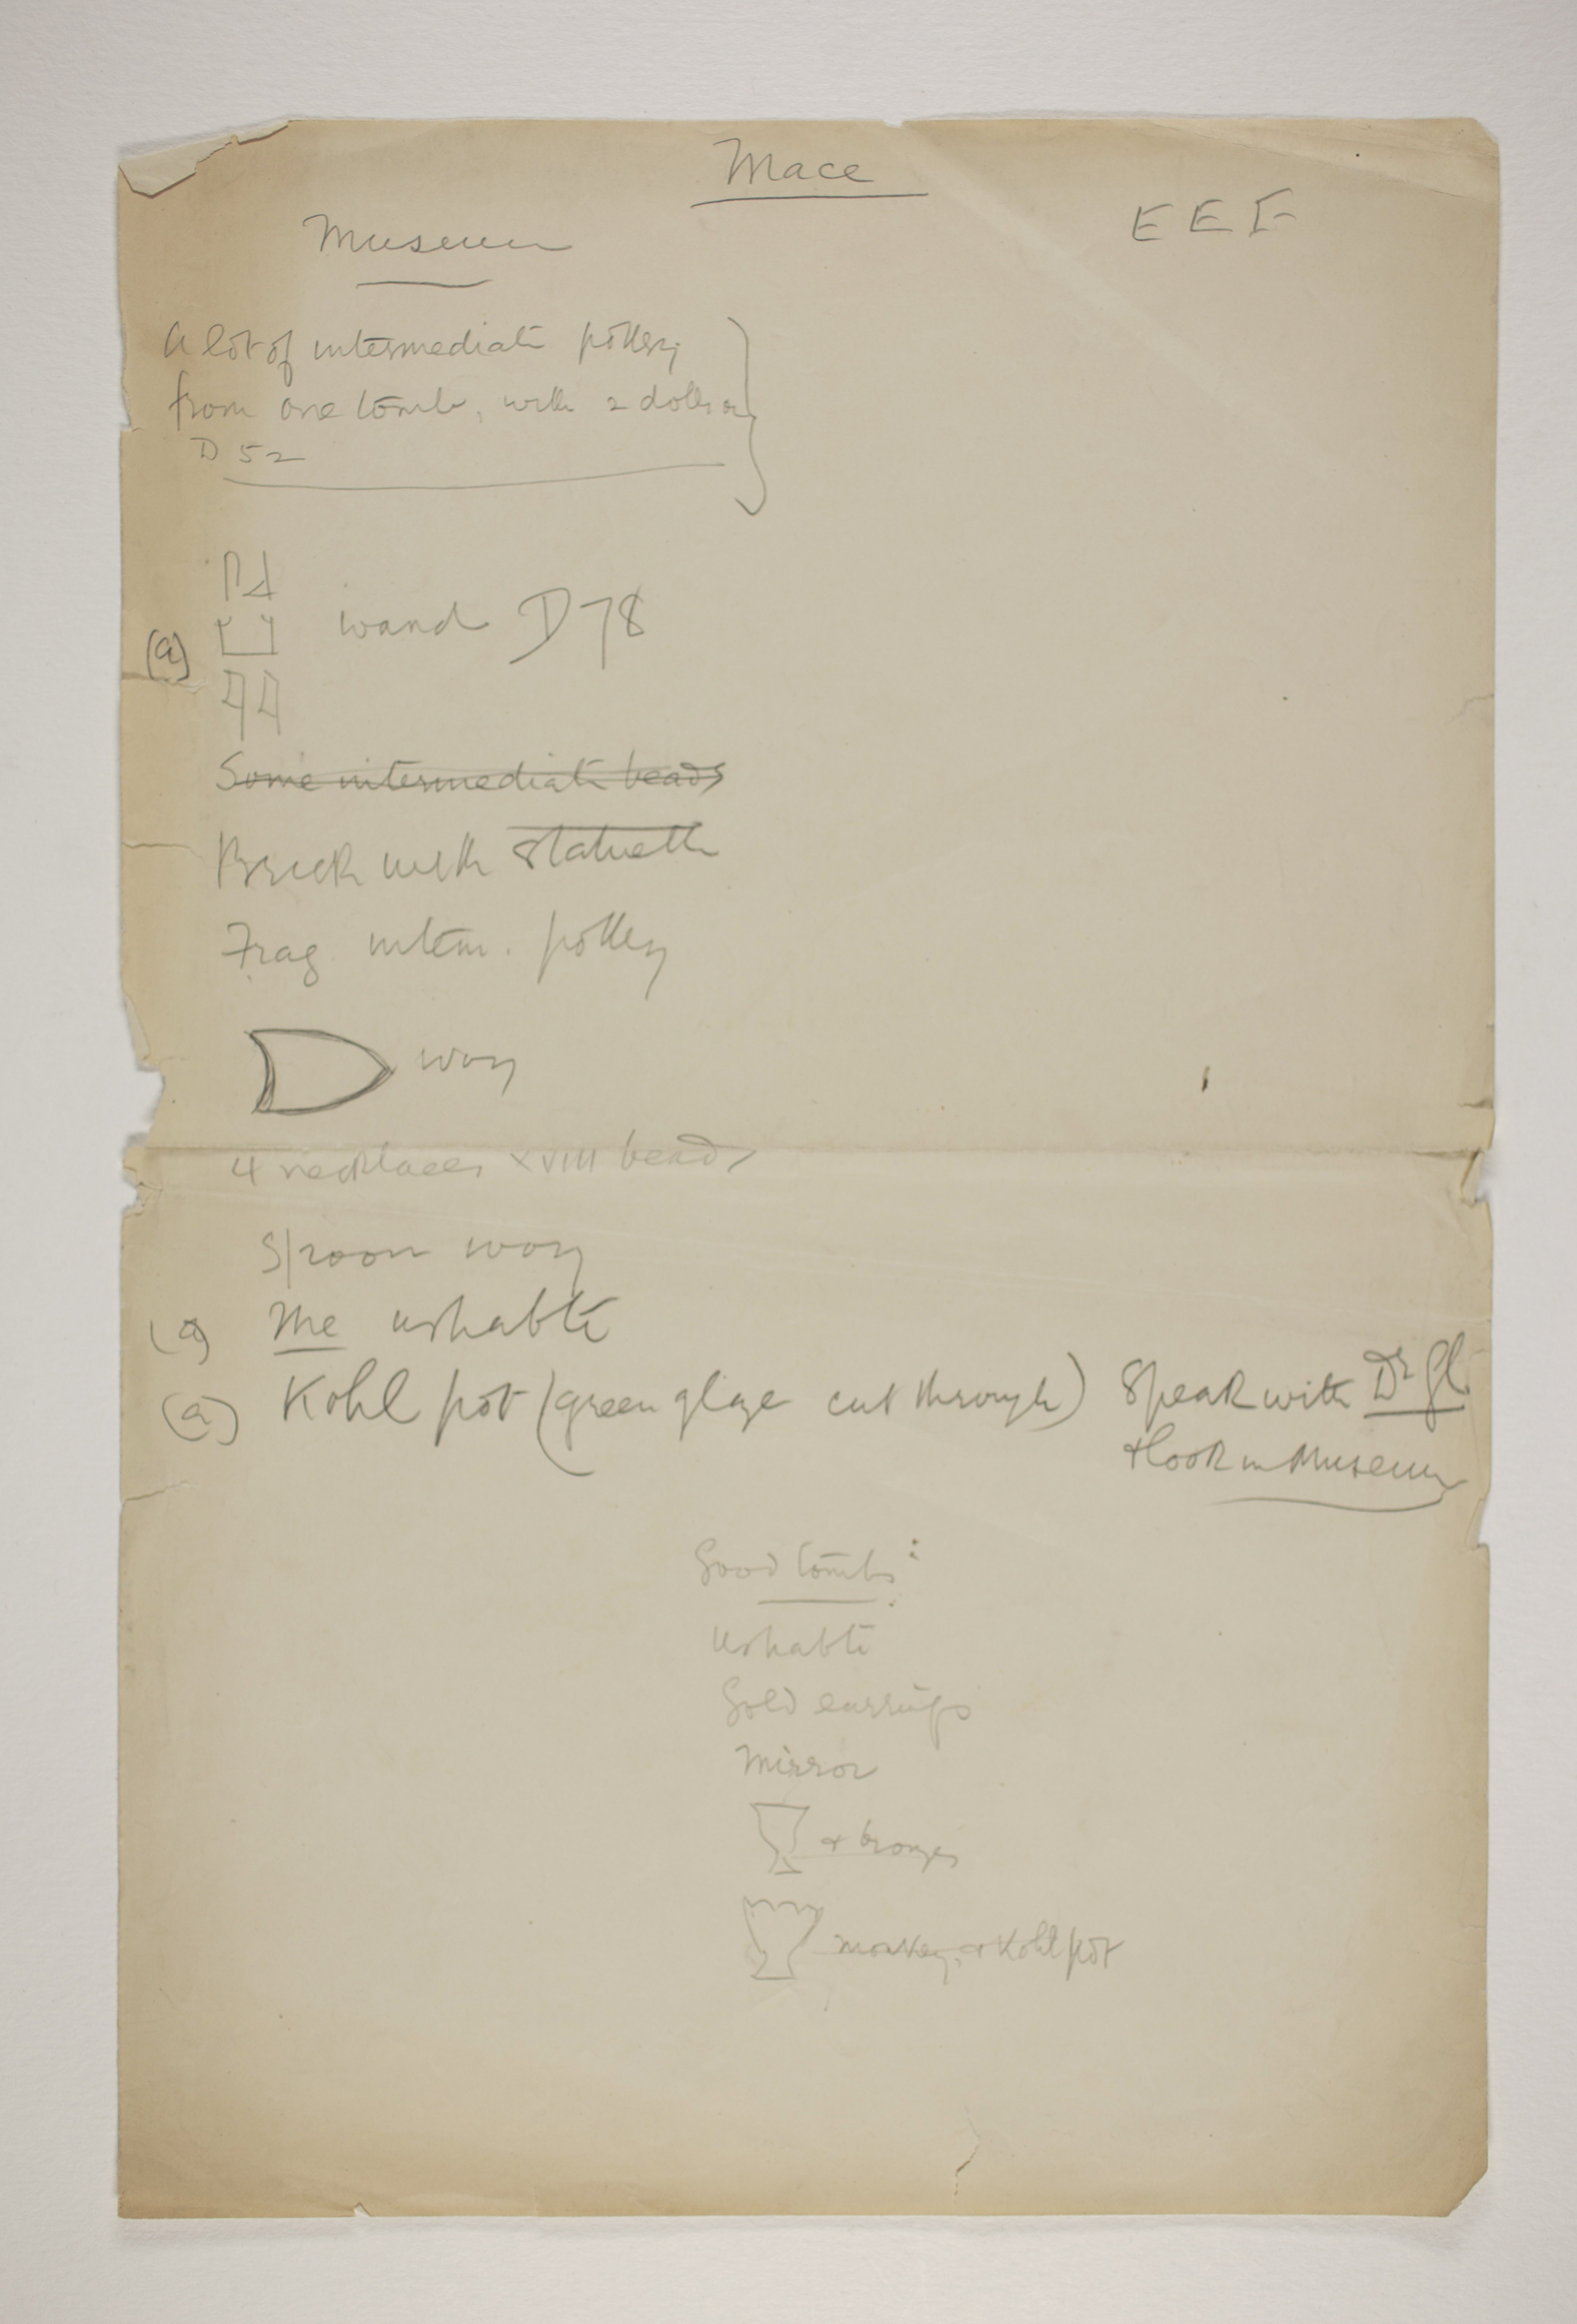 Mace
Museum
E E F
A lot of intermediate pottery
from one tomb, with 2 dolls
D 52
(a) wand D78
Some intermediate beads
Brick with statuette
Frag interm. pottery
ivory
4 necklaces XVIII beads
Spoon ivory
(a) The ushabti
(a) Kohl pot (green glaze cut through) Speak with Dr Gl.
+ look in Museum
Good tombs:
ushabti
Gold earrings
Mirror
+ bronzes
monkey, + Kohl pot